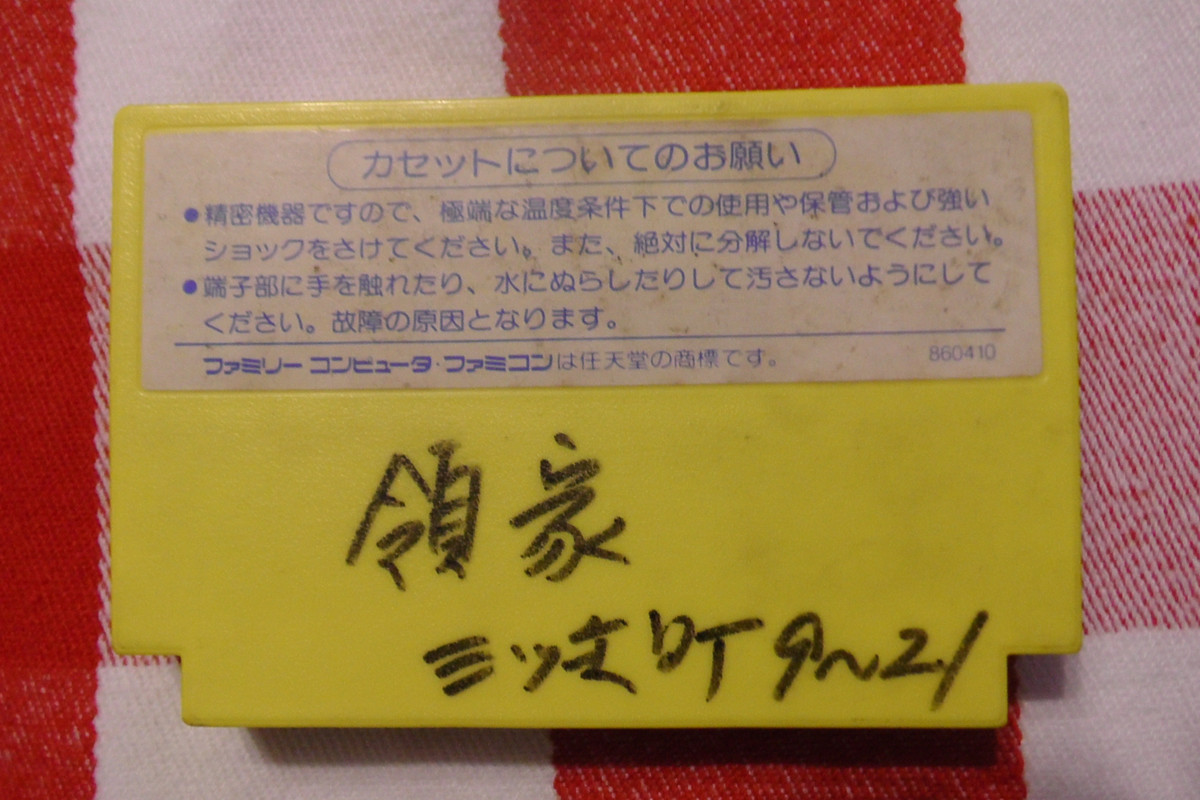 カセットについてのお願い
●精密機器ですので、極端な温度条件下での使用や保管および強い
ショックをさけてください。また、絶対に分解しないでください。
●端子部に手を触れたり、水にぬらしたりして汚さないようにして
ください。故障の原因となります。
ファミリーコンピュータ・ファミコンは任天堂の商標です。 860410
領家
三ツ主町9~21